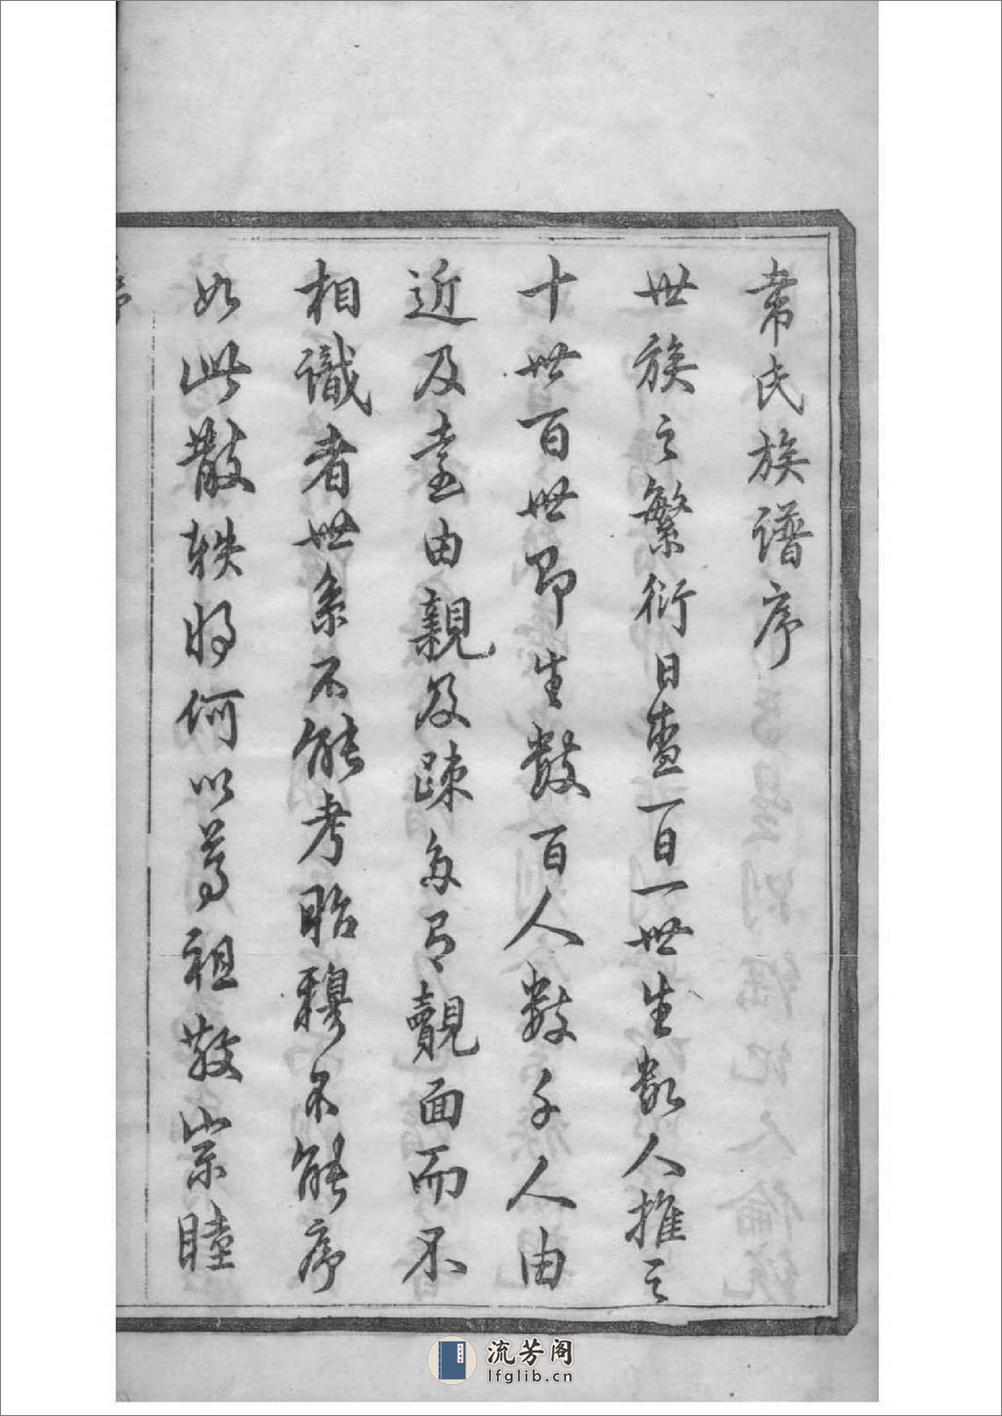 常氏族譜序
世族之繁衍日盛一日一世生數人推之
十世百世即生數百人數千人由
近及遠由親及疎多有覿面而不
相識者世系不能考昭穆不能序
如此散軼將何以尊祖敬宗睦
序
流芳阁
lfglib.cn